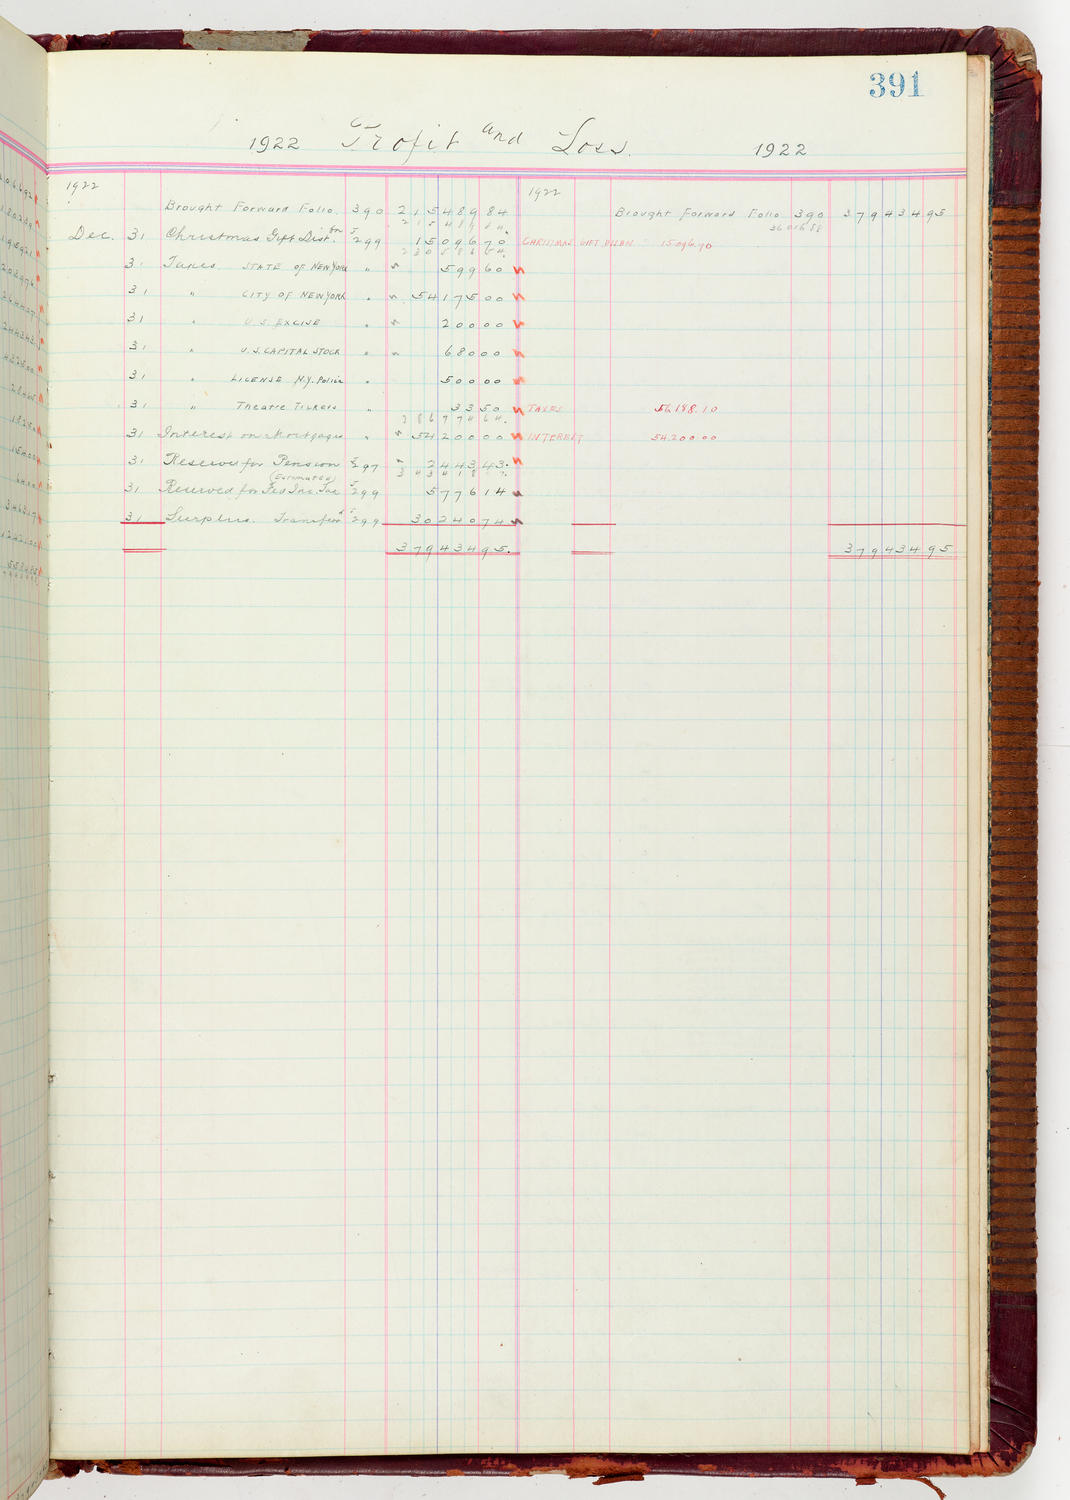 391
1922 Profit and Loss. 1922
1922 1922
Brought Forward Folio. 390 215489 84 Brought Forward Folio 390 379434 95
215489 84.
Dec. 31 Christmas Gift Distbn J299 15096 70 CHRISTMAS GIFT DISBN 15096.70
230586 54.
31 Taxes STATE OF NEW YORK " " 599 60
31 " CITY OF NEW YORK " " 54175 00
31 " U.S. EXCISE " " 200 00
31 " U.S. CAPITAL STOCK " " 680 00
31 " LICENSE N.Y. Police " 500 00
31 " Theatre Tickets " 33 50 TAXES 56188.10
286774 64.
31 Interest on Mortgages " " 54200 00 INTEREST 54200 00
31 Reserve for Pension J297 " 2443 43.
(Estimated) 343418 07.
31 Reserved for Fed Inc. Tax J299 5776 14
31 Surplus. Transferd J299 30240 74
379434 95. 379434 95